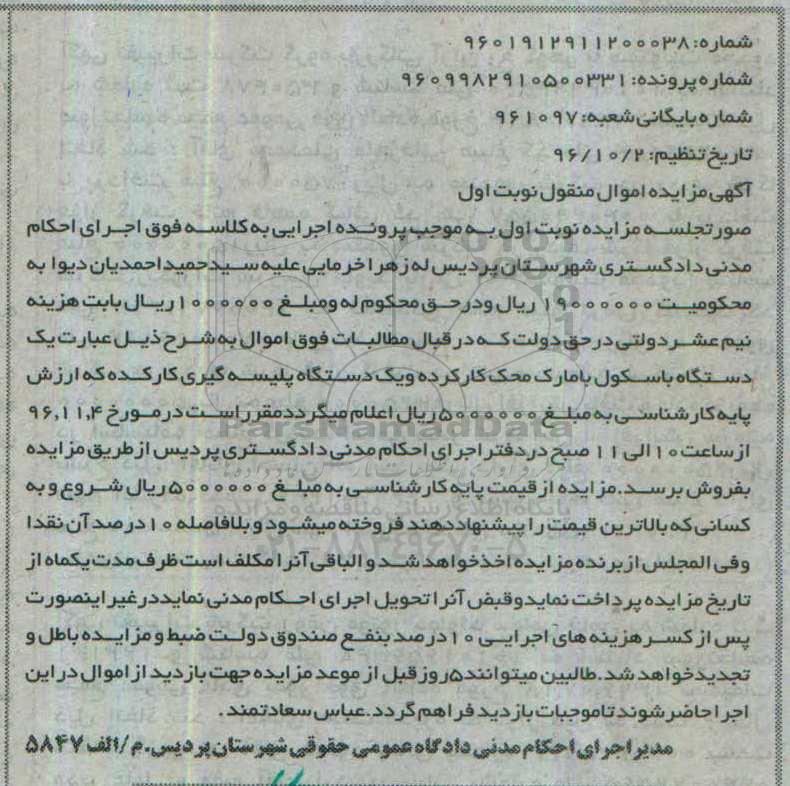 شماره: ۹۶۰۱۹۱۲۹۱۱۲۰۰۰۳۸
شماره پرونده: ۹۶۰۹۹۸۲۹۱۰۵۰۰۳۳۱
شماره بایگانی شعبه: ۹۶۱۰۹۷
تاریخ تنظیم: ۹۶/۱۰/۲
آگهی مزایده اموال منقول نوبت اول
صورتجلسه مزایده نوبت اول به موجب پرونده اجرایی به کلاسه فوق اجرای احکام
مدنی دادگستری شهرستان پردیس له زهرا خرمایی علیه سیدحمید احمدیان دیوا به
محکومیت ۱۹۰۰۰۰۰۰ ریال ودرحق محکوم له ومبلغ ۱۰۰۰۰۰۰ریال بابت هزینه
نیم عشر دولتی در حق دولت که در قبال مطالبات فوق اموال به شرح ذیل عبارت یک
دستگاه باسکول بامارک محک کارکرده ویک دستگاه پلیسه گیری کارکده که ارزش
پایه کارشناسی به مبلغ ۵۰۰۰۰۰۰۰ریال اعلام میگرددمقرراست درمورخ ۹۶,۱۱,۴
از ساعت ۱۰ الی ۱۱ صبح دردفتر اجرای احکام مدنی دادگستری پردیس از طریق مزایده
بفروش برسد.مزایده از قیمت پایه کارشناسی به مبلغ ۵۰۰۰۰۰۰۰ریال شروع و به
کسانی که بالاترین قیمت را پیشنهاددهند فروخته میشود و بلافاصله ۱۰درصد آن نقدا
وفی المجلس از برنده مزایده اخذخواهد شد و الباقی آنرا مکلف است ظرف مدت یکماه از
تاریخ مزایده پرداخت نمایدوقبض آنرا تحویل اجرای احکام مدنی نمایددرغیر اینصورت
پس از کسر هزینه های اجرایی ۱۰درصد بنفع صندوق دولت ضبط و مزایده باطل و
تجدیدخواهد شد.طالبین میتوانند۵روز قبل از موعد مزایده جهت بازدید از اموال در این
اجرا حاضر شوند تاموجبات بازدید فراهم گردد.عباس سعادتمند.
مدیر اجرای احکام مدنی دادگاه عمومی حقوقی شهرستان پردیس.م/الف ۵۸۴۷
ParsNamadData